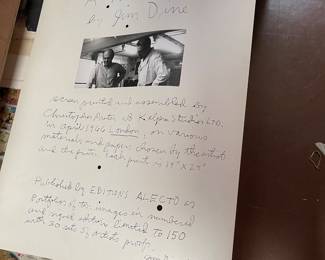 A
by Jim Dine
screen printed and assembled by
Christopher Prater at Kelpra Studios LTD.
in April 1966 London, on various
materials and papers chosen by the artist
and the printer. Each print is 19" X 24"
Published by EDITIONS ALECTO as
Portfolios of ten images in numbered
and signed editions limited to 150
with 30 sets of artists proofs.